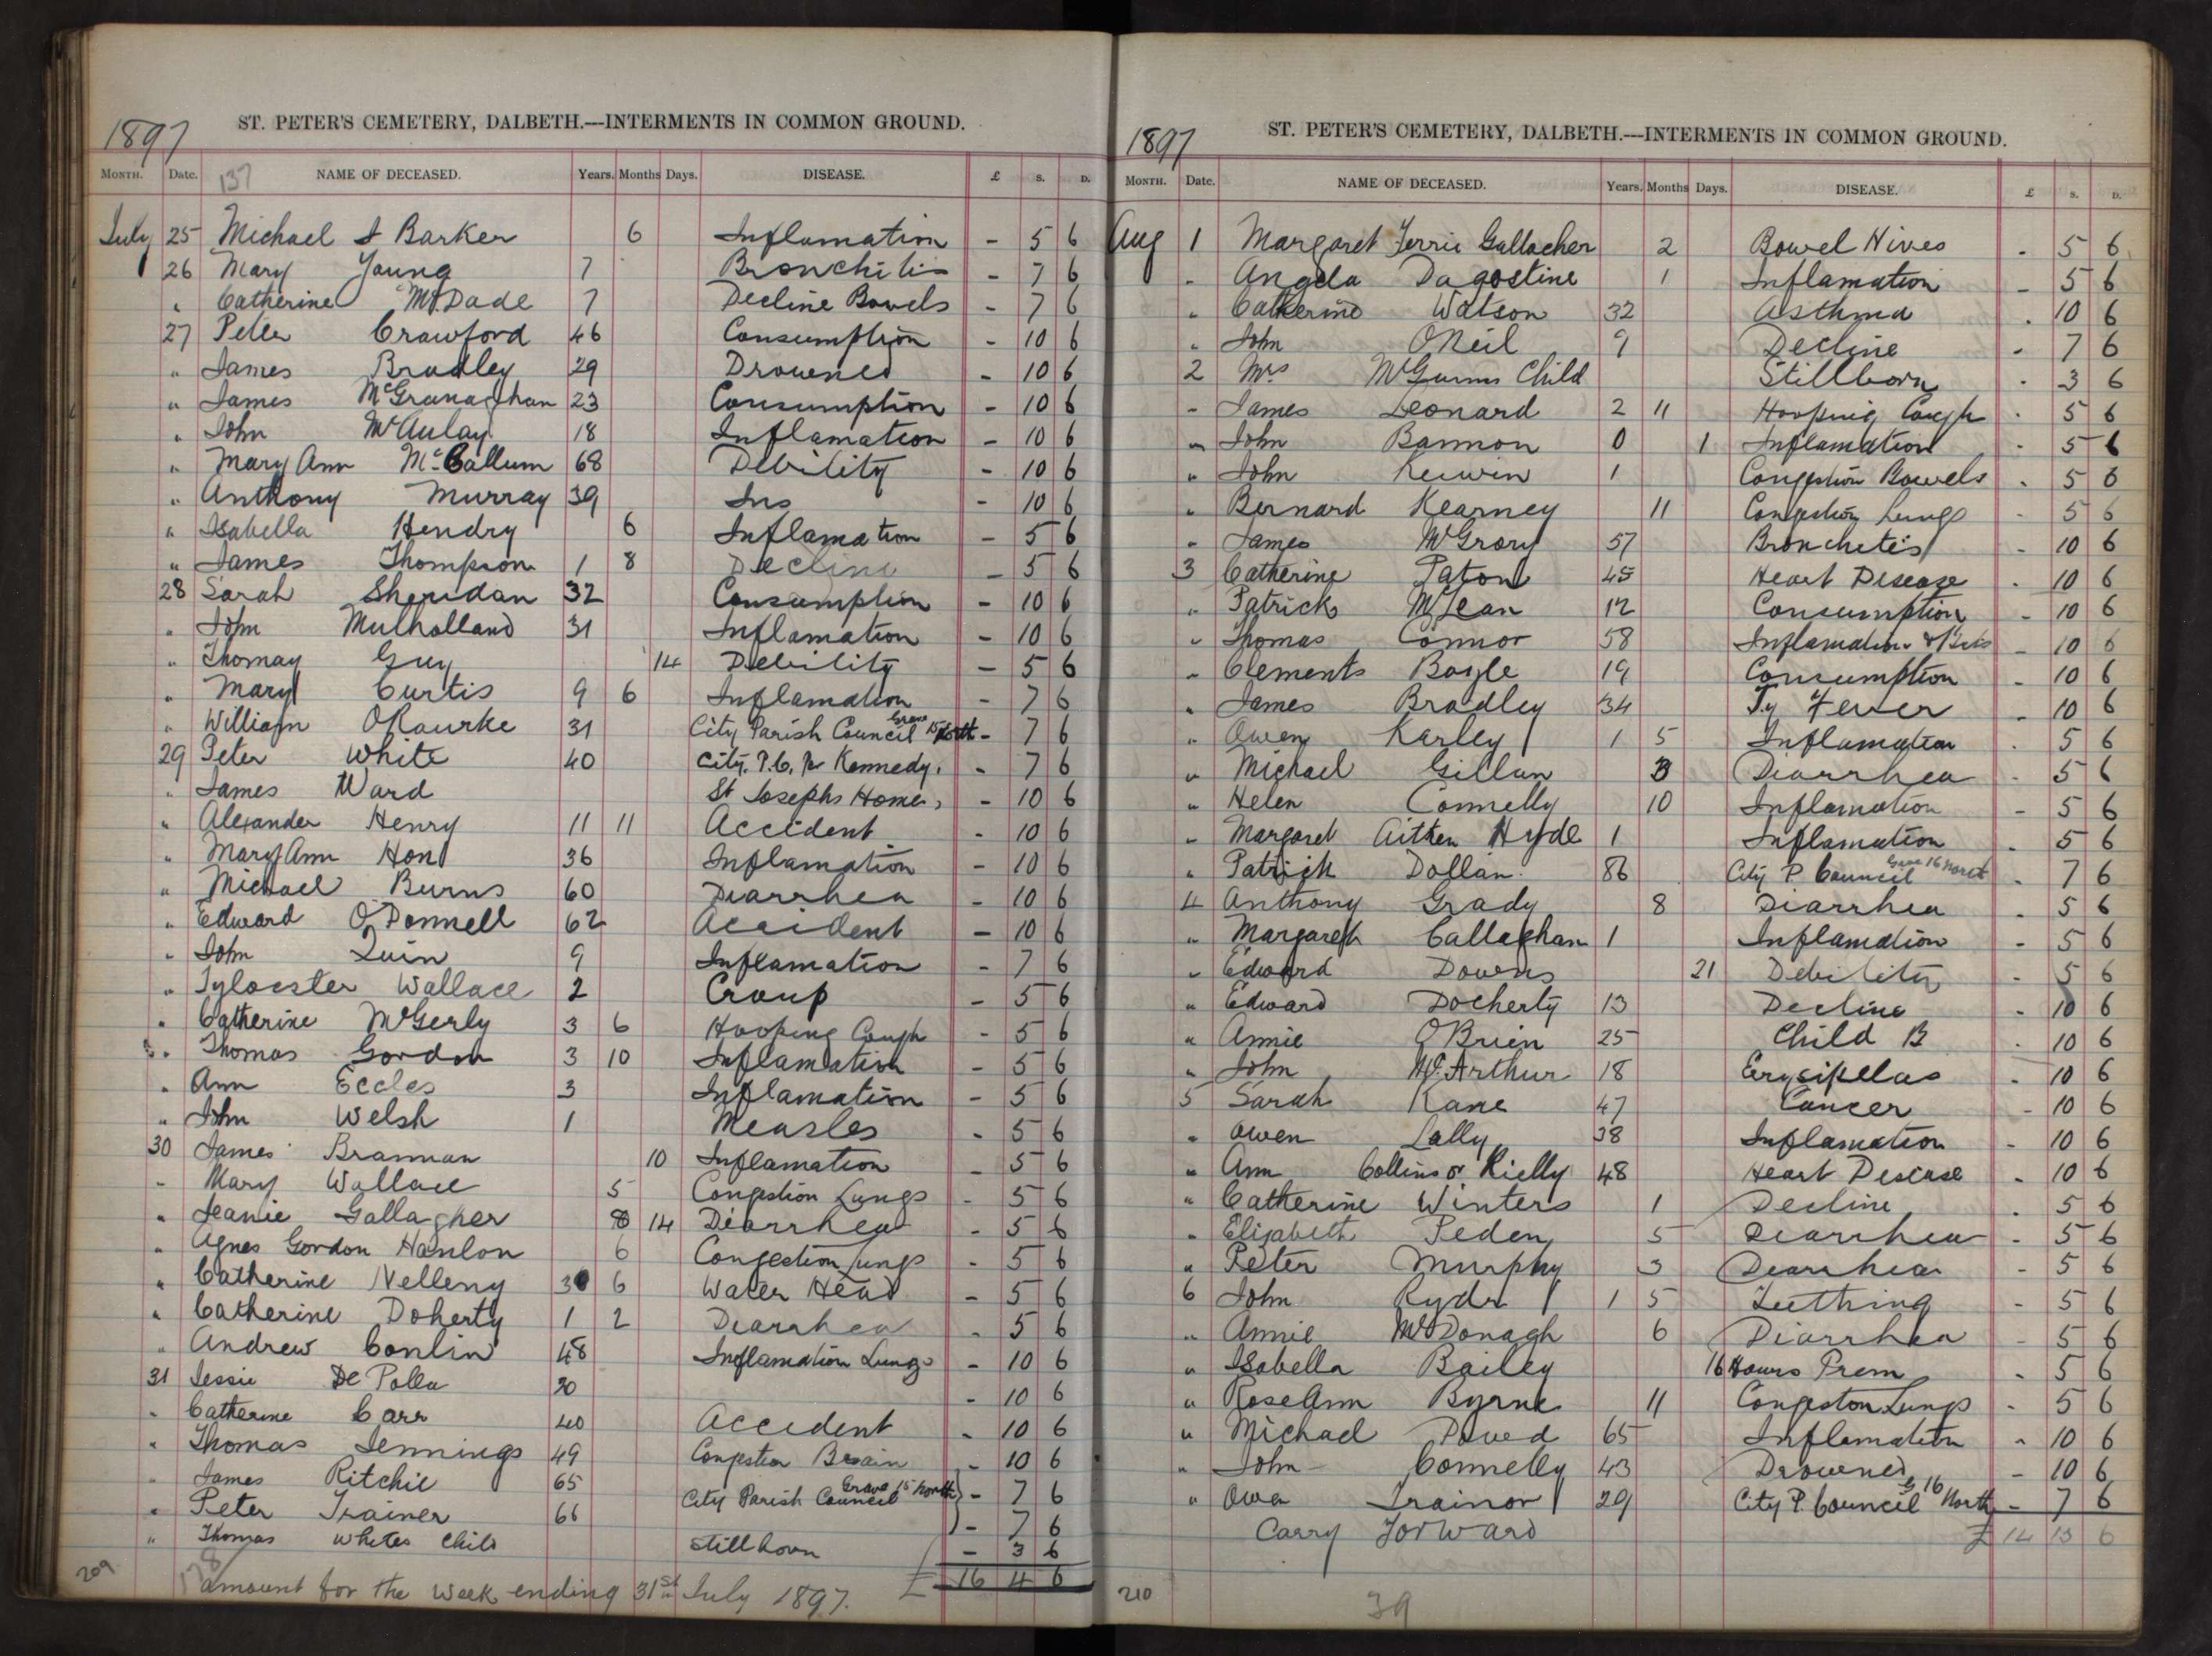 1897
ST. PETER'S CEMETERY, DALBETH.—INTERMENTS IN COMMON GROUND.
MONTH. Date. 137 NAME OF DECEASED. Years. Months Days. DISEASE. £ S. D.
July 25 Michael J Barker 6 Inflamation - 5 6
26 Mary Young 7 Bronchitis - 7 6
" Catherine McDade 7 Decline Bowels - 7 6
27 Peter Crawford 46 Consumption - 10 6
" James Bradley 29 Drowned - 10 6
" James McGranaghan 23 Consumption - 10 6
" John McAulay 18 Inflamation - 10 6
" Mary Ann McCallum 68 Debility - 10 6
" Anthony Murray 39 Ins - 10 6
" Isabella Hendry 6 Inflamation - 5 6
" James Thompson 1 8 Decline - 5 6
28 Sarah Sheridan 32 Consumption - 10 6
" John Mulholland 31 Inflamation - 10 6
" Thomas Guy 14 Debility - 5 6
" Mary Curtis 9 6 Inflamation - 7 6
" William ORourke 31 City Parish Council Grave 15 North - 7 6
29 Peter White 40 City. P.C. pr Kennedy. - 7 6
" James Ward St Josephs Home, - 10 6
" Alexander Henry 11 11 Accident - 10 6
" Mary Ann Hon 36 Inflamation - 10 6
" Michael Burns 60 Diarrhea - 10 6
" Edward O'Donnell 62 Accident - 10 6
" John Quin 9 Inflamation - 7 6
" Sylvester Wallace 2 Croup - 5 6
" Catherine McGerly 3 6 Hooping Cough - 5 6
" Thomas Gordon 3 10 Inflamation - 5 6
" Ann Eccles 3 Inflamation - 5 6
" John Welsh 1 Measles - 5 6
30 James Brannan 10 Inflamation - 5 6
" Mary Wallace 5 Congestion Lungs - 5 6
" Jeanie Gallagher 8 14 Diarrhea - 5 6
" Agnes Gordon Hanlon 6 Congestion Lungs - 5 6
" Catherine Nelleny 3 6 Water Head - 5 6
" Catherine Doherty 1 2 Diarrhea - 5 6
" Andrew Conlin 48 Inflamation Lungs - 10 6
31 Jessie De Polla 30 - 10 6
" Catherine Carr 40 Accident - 10 6
" Thomas Jennings 49 Congestion Brain - 10 6
" James Ritchie 65 City Parish Council Grave 15 North) - 7 6
" Peter Trainer 66 ) - 7 6
" Thomas Whites Child Stillborn - 3 6
209 amount for the week ending 31st July 1897. £ 16 4 6
1897
ST. PETER'S CEMETERY, DALBETH.—INTERMENTS IN COMMON GROUND.
MONTH. Date. NAME OF DECEASED. Years. Months Days. DISEASE. £ S. D.
Aug 1 Margaret Ferrie Gallacher 2 Bowel Hives - 5 6
" Angela Dagostine 1 Inflamation - 5 6
" Catherine Watson 32 Asthma - 10 6
" John ONeil 9 Decline - 7 6
2 Mrs McGurns Child Stillborn - 3 6
" James Leonard 2 11 Hooping Cough - 5 6
" John Bannon 0 1 Inflamation - 5 6
" John Kerwin 1 Congestion Bowels - 5 6
" Bernard Kearney 11 Congestion Lungs - 5 6
" James McGrory 57 Bronchetis - 10 6
3 Catherine Paton 45 Heart Disease - 10 6
" Patrick McLean 12 Consumption - 10 6
" Thomas Connor 58 Inflamation - 10 6
" Clements Boyle 19 Consumption - 10 6
" James Bradley 34 Ty Fever - 10 6
" Owen Karley 1 5 Inflamation - 5 6
" Michael Gillan 3 Diarrhea - 5 6
" Helen Connelly 10 Inflamation - 5 6
" Margaret Aitken Hyde 1 Inflamation - 5 6
" Patrick Dollan 86 City P Council Grave 16 North - 7 6
4 Anthony Grady 8 Diarrhea - 5 6
" Margaret Callaghan 1 Inflamation - 5 6
" Edward Downs 21 Debility - 5 6
" Edward Docherty 13 Decline - 10 6
" Annie OBrien 25 Child B - 10 6
" John McArthur 18 Erysipelas - 10 6
5 Sarah Kane 47 Cancer - 10 6
" Owen Lally 38 Inflamation - 10 6
" Ann Collins or Rielly 48 Heart Disease - 10 6
" Catherine Winters 1 Decline - 5 6
" Elizabeth Peden 5 Diarrhea - 5 6
" Peter Murphy 3 Diarrhea - 5 6
6 John Ryder 1 5 Teething - 5 6
" Annie McDonagh 6 Diarrhea - 5 6
" Isabella Bailey 16 Hours Prem - 5 6
" RoseAnn Byrne 11 Congeston Lungs - 5 6
" Michael Daved 65 Inflamation - 10 6
" John Connelly 43 Drowned - 10 6
" Owen Trainor 29 City P. Council G 16 North - 7 6
Carry Forward £ 14 13 6
210 39